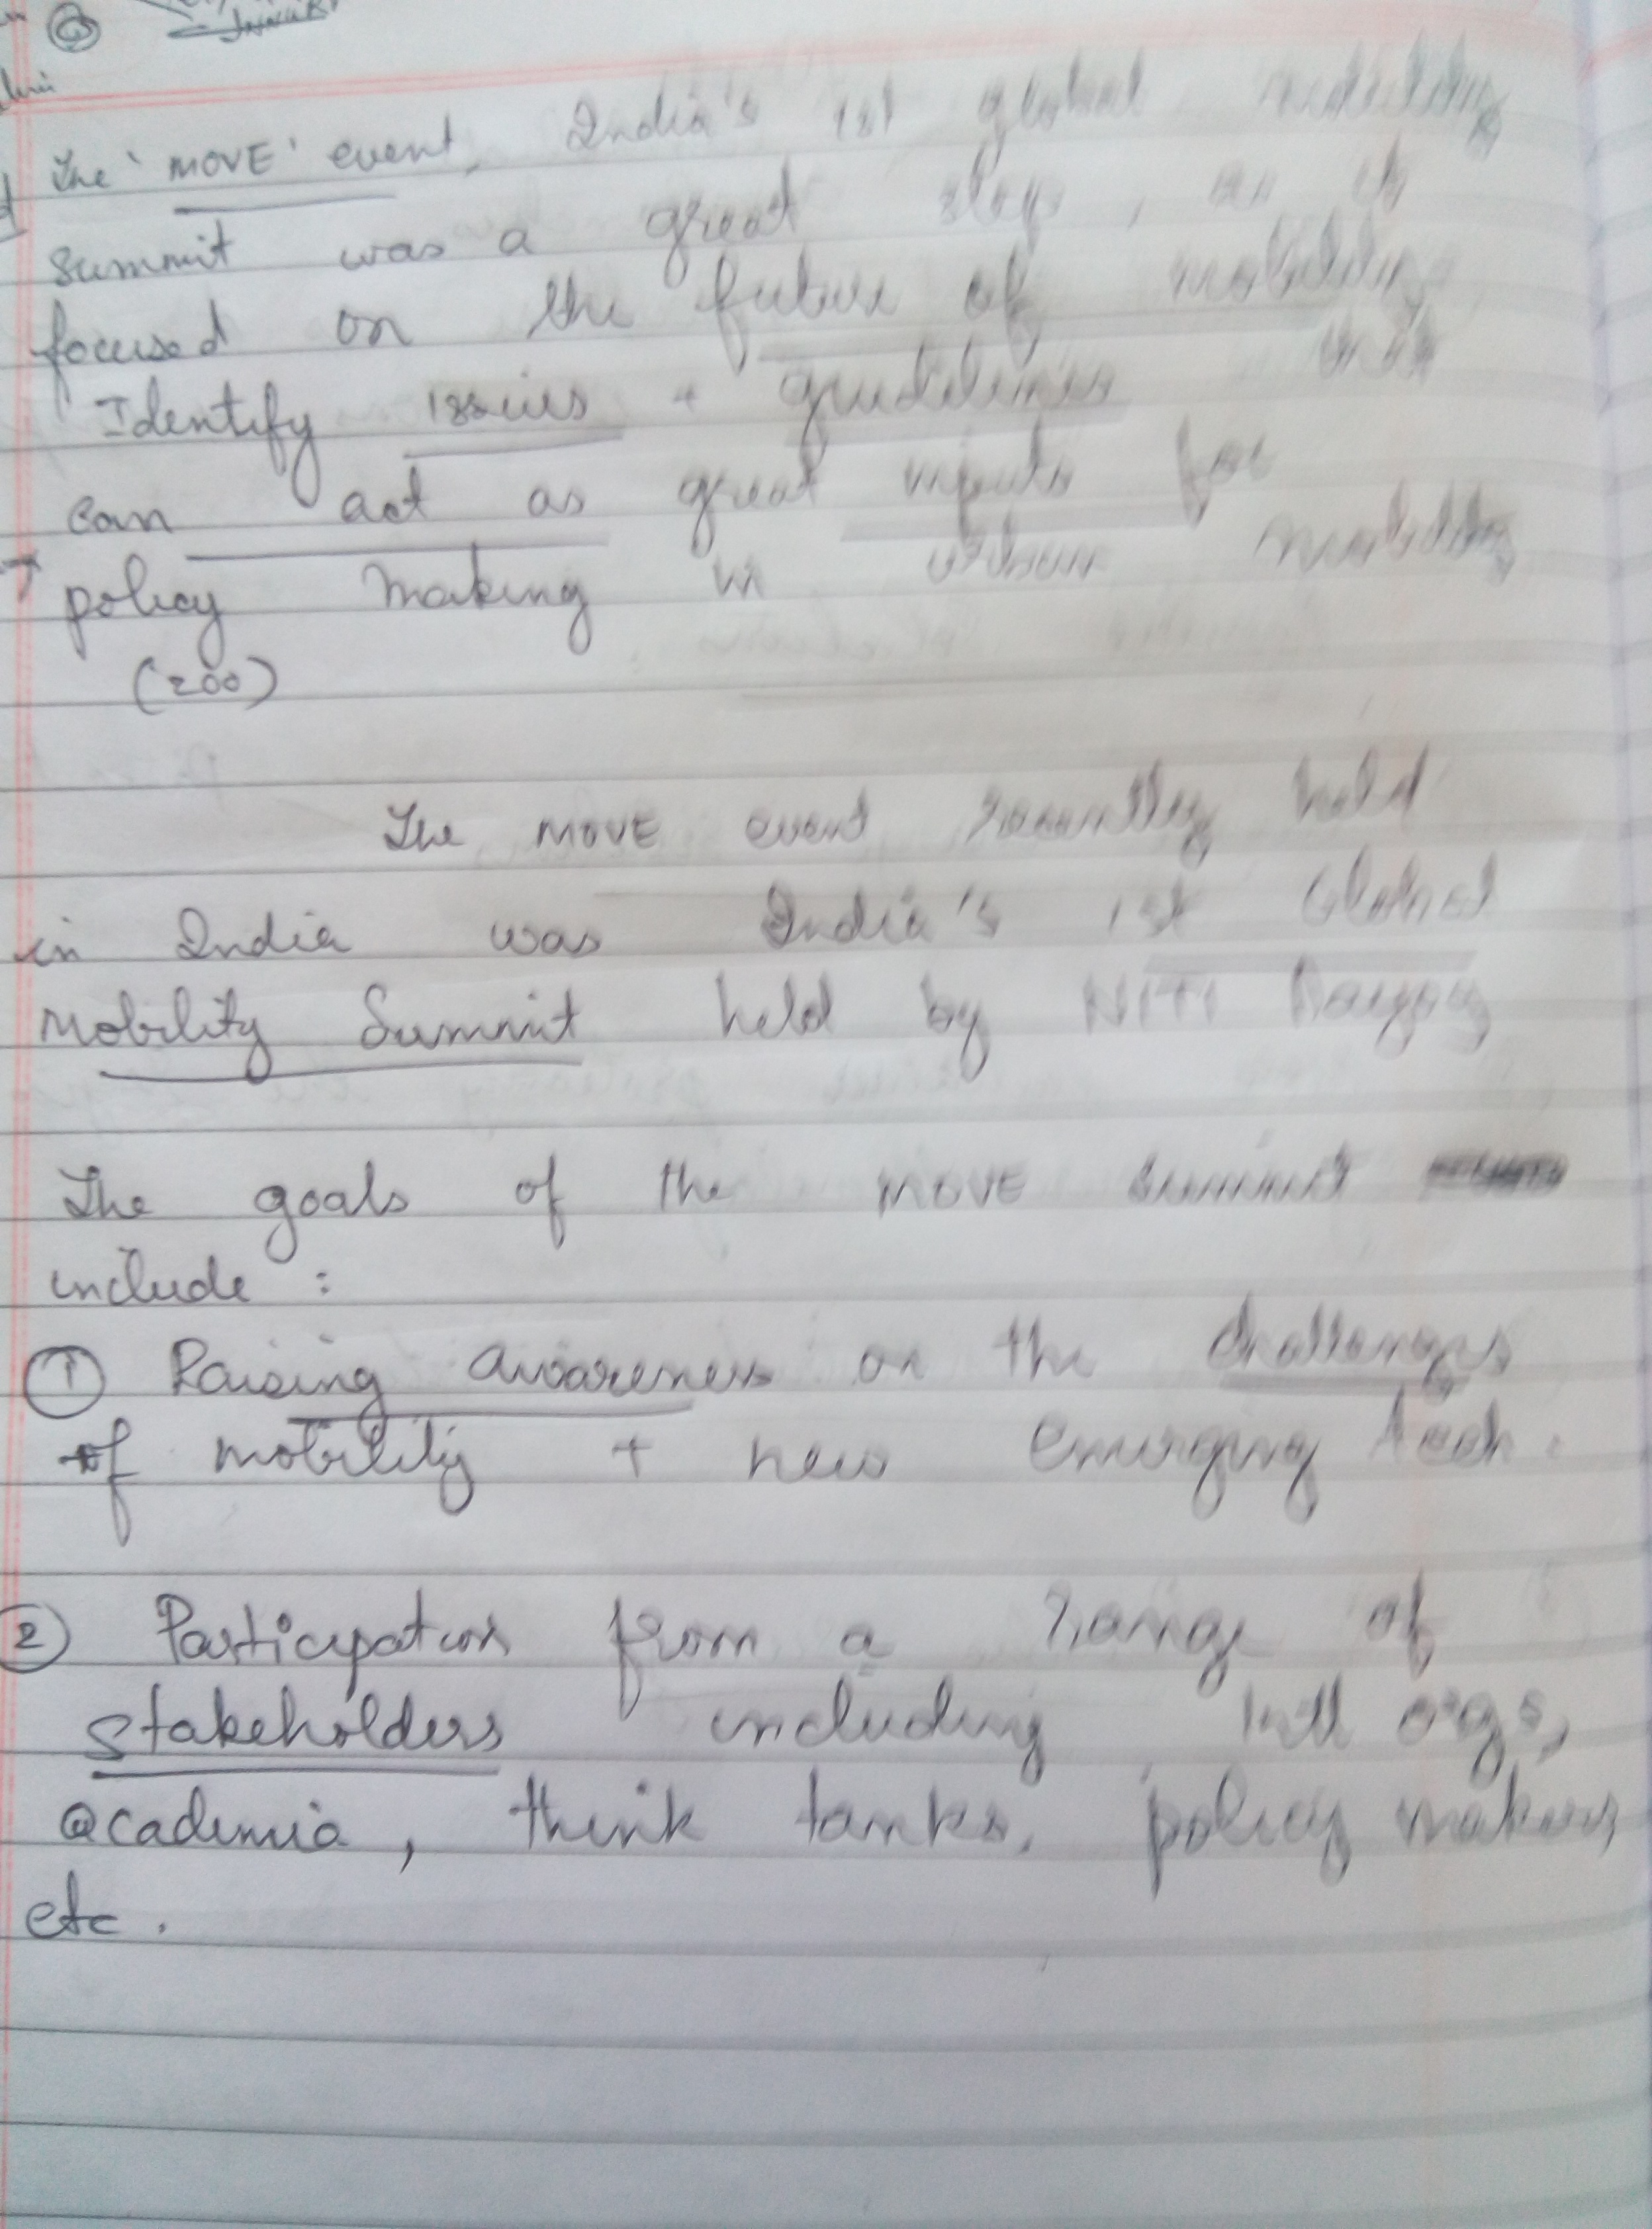 The 'MOVE' event, India's 1st global mobility
summit was a great step, as it
focused on the future of mobility
Identify issues + guidelines that
can act as great inputs for
policy making in urban mobility
(200)
The MOVE event recently held
in India was India's 1st Global
Mobility Summit held by NITI Aayog
The goals of the MOVE summit
include :
① Raising awareness on the challenges
of mobility + new emerging tech.
② Participation from a range of
stakeholders including Intl orgs,
academia, think tanks, policy makers
etc.